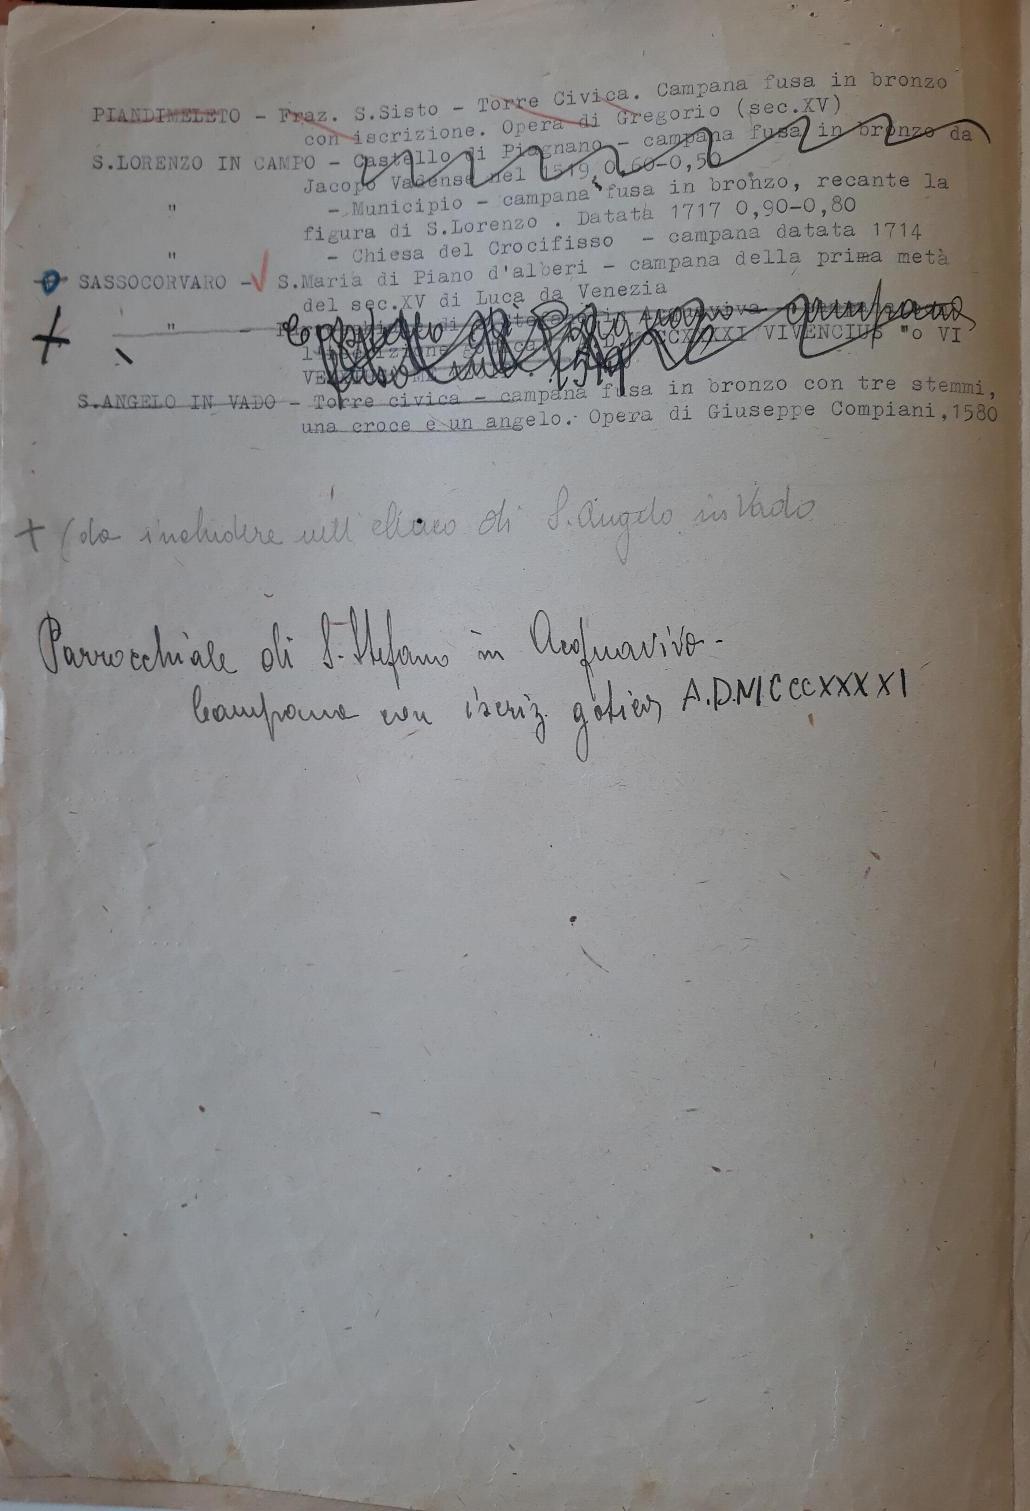 PIANDIMELETO - Fraz. S.Sisto - Torre Civica. Campana fusa in bronzo
con iscrizione. Opera di Gregorio (sec.XV)
S.LORENZO IN CAMPO - Castello di Piagnano - campana fusa in bronzo da
Jacopo Vadense nel 1519, 0,60-0,50
" - Municipio - campana fusa in bronzo, recante la
figura di S.Lorenzo . Datata 1717 0,90-0,80
" - Chiesa del Crocifisso - campana datata 1714
SASSOCORVARO - S.Maria di Piano d'alberi - campana della prima metà
del sec.XV di Luca da Venezia
+ " - campana
VIVENCIUS "o VI
1519
S.ANGELO IN VADO - Torre civica - campana fusa in bronzo con tre stemmi,
una croce e un angelo. Opera di Giuseppe Compiani,1580
+ (da includere nell'elenco di S. Angelo in Vado
Parrocchiale di S. Stefano in Acquaviva -
Campana con iscriz. gotica, A.D.MCCCXXXXI